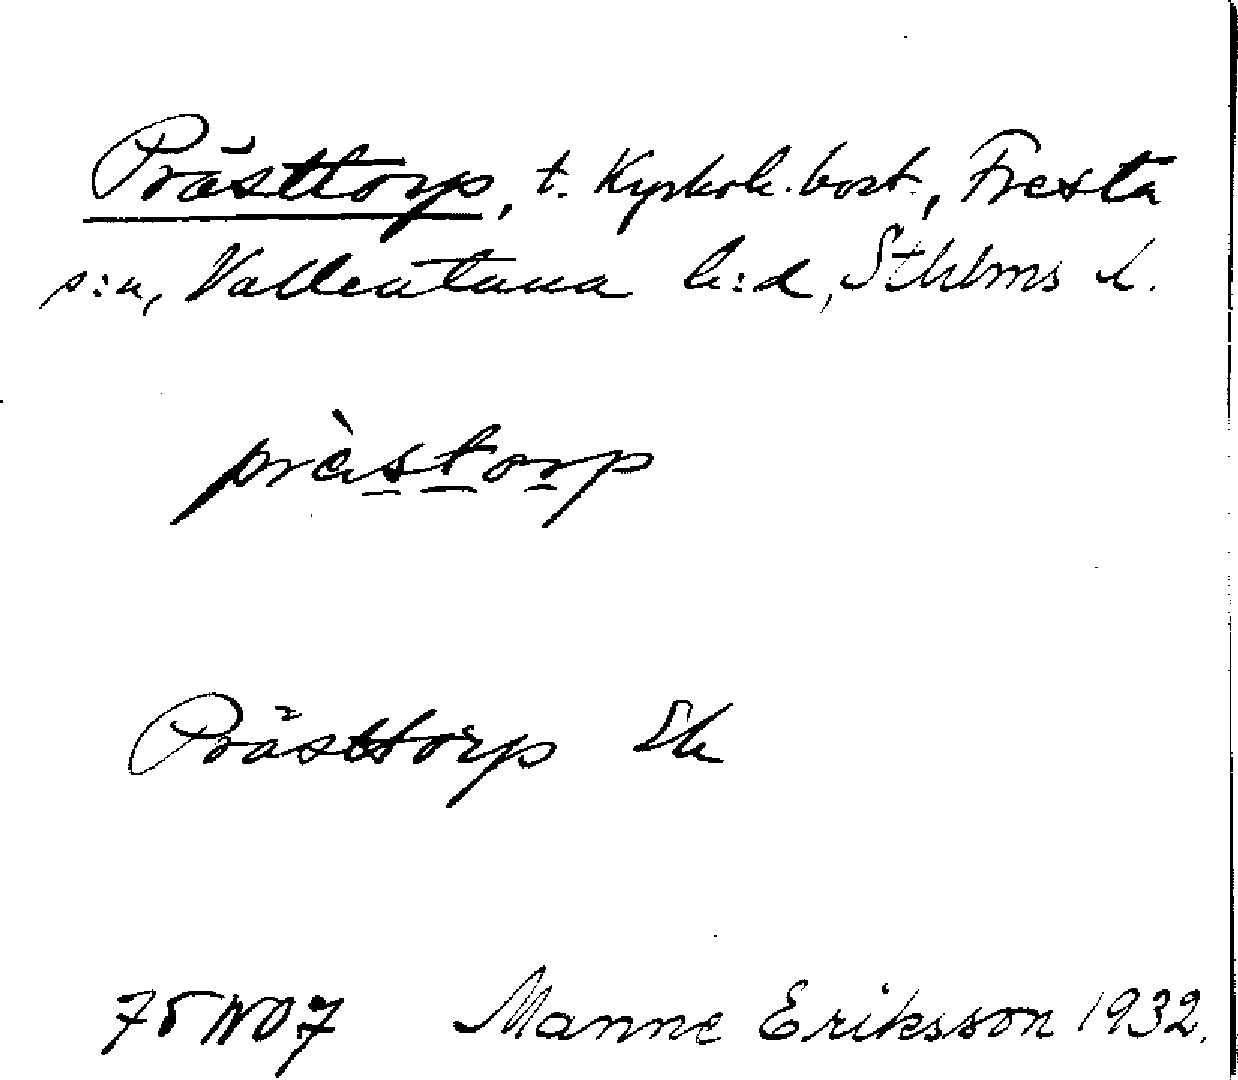 Prästtorp, t. Kyrkoh.bost., Fresta
s:n, Vallentuna h:d, Sthlms l.
prä̀storp
Prästtorp Ek
75 NO7 Manne Eriksson 1932.